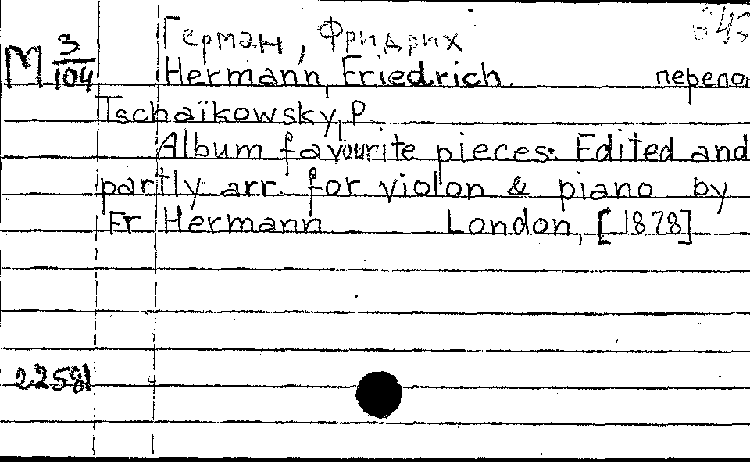 Герман, Фридрих
M 3/104 Hermann, Friedrich. перело
Tschaïkowsky, P.
Album favourite pieces. Edited and
partly arr. for violon & piano by
Fr. Hermann London, [1878]
22581